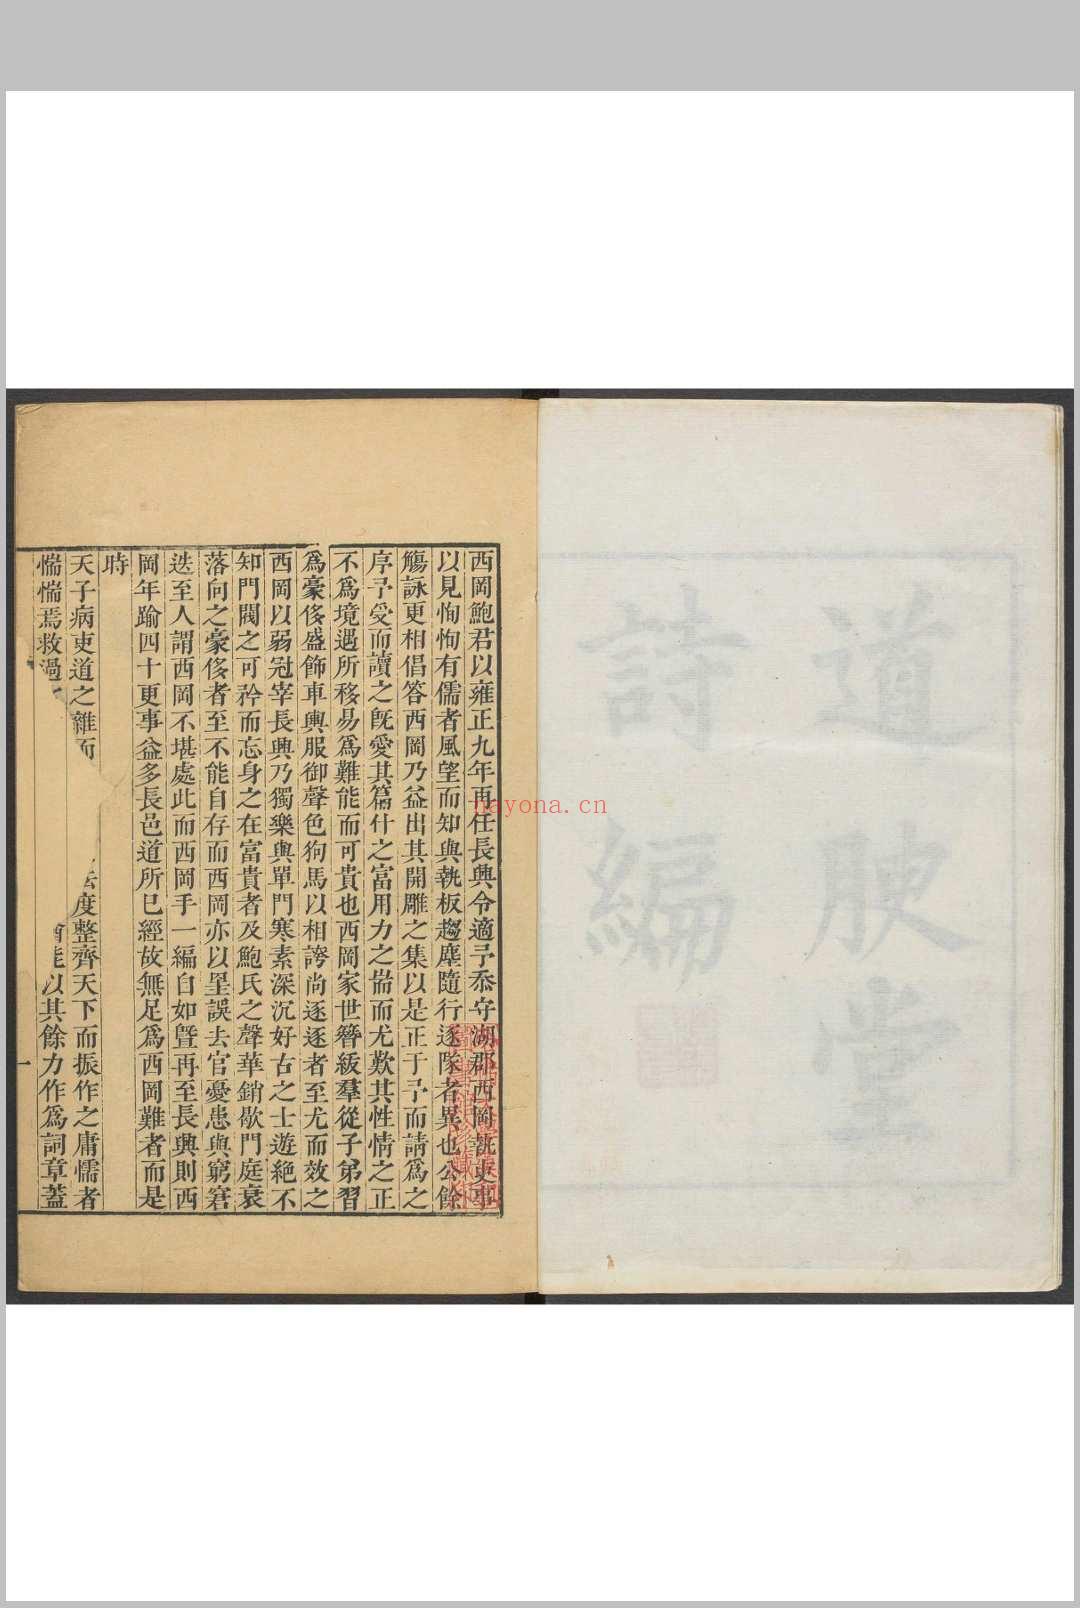 道腴堂
詩編
西岡鮑君以雍正九年再任長興令適予忝守湖郡西岡執吏事
以見恂恂有儒者風望而知與執板趨塵隨行逐隊者異也公餘
觴詠更相倡答西岡乃益出其開雕之集以是正于予而請為之
序予受而讀之旣愛其篇什之富用力之耑而尤歎其性情之正
不為境遇所移易為難能而可貴也西岡家世簪紱羣從子弟習
為豪侈盛飾車輿服御聲色狗馬以相誇尚逐逐者至尤而效之
西岡以弱冠宰長興乃獨樂與單門寒素深沉好古之士遊絕不
知門閥之可矜而忘身之在富貴者及鮑氏之聲華銷歇門庭衰
落向之豪侈者至不能自存而西岡亦以罣誤去官憂患與窮窘
迭至人謂西岡不堪處此而西岡手一編自如曁再至長興則西
岡年踰四十更事益多長邑道所已經故無足為西岡難者而是
時
天子病吏道之雜而 度整齊天下而振作之庸懦者
惴惴焉救過 能以其餘力作為詞章蓋
一
nayona.cn